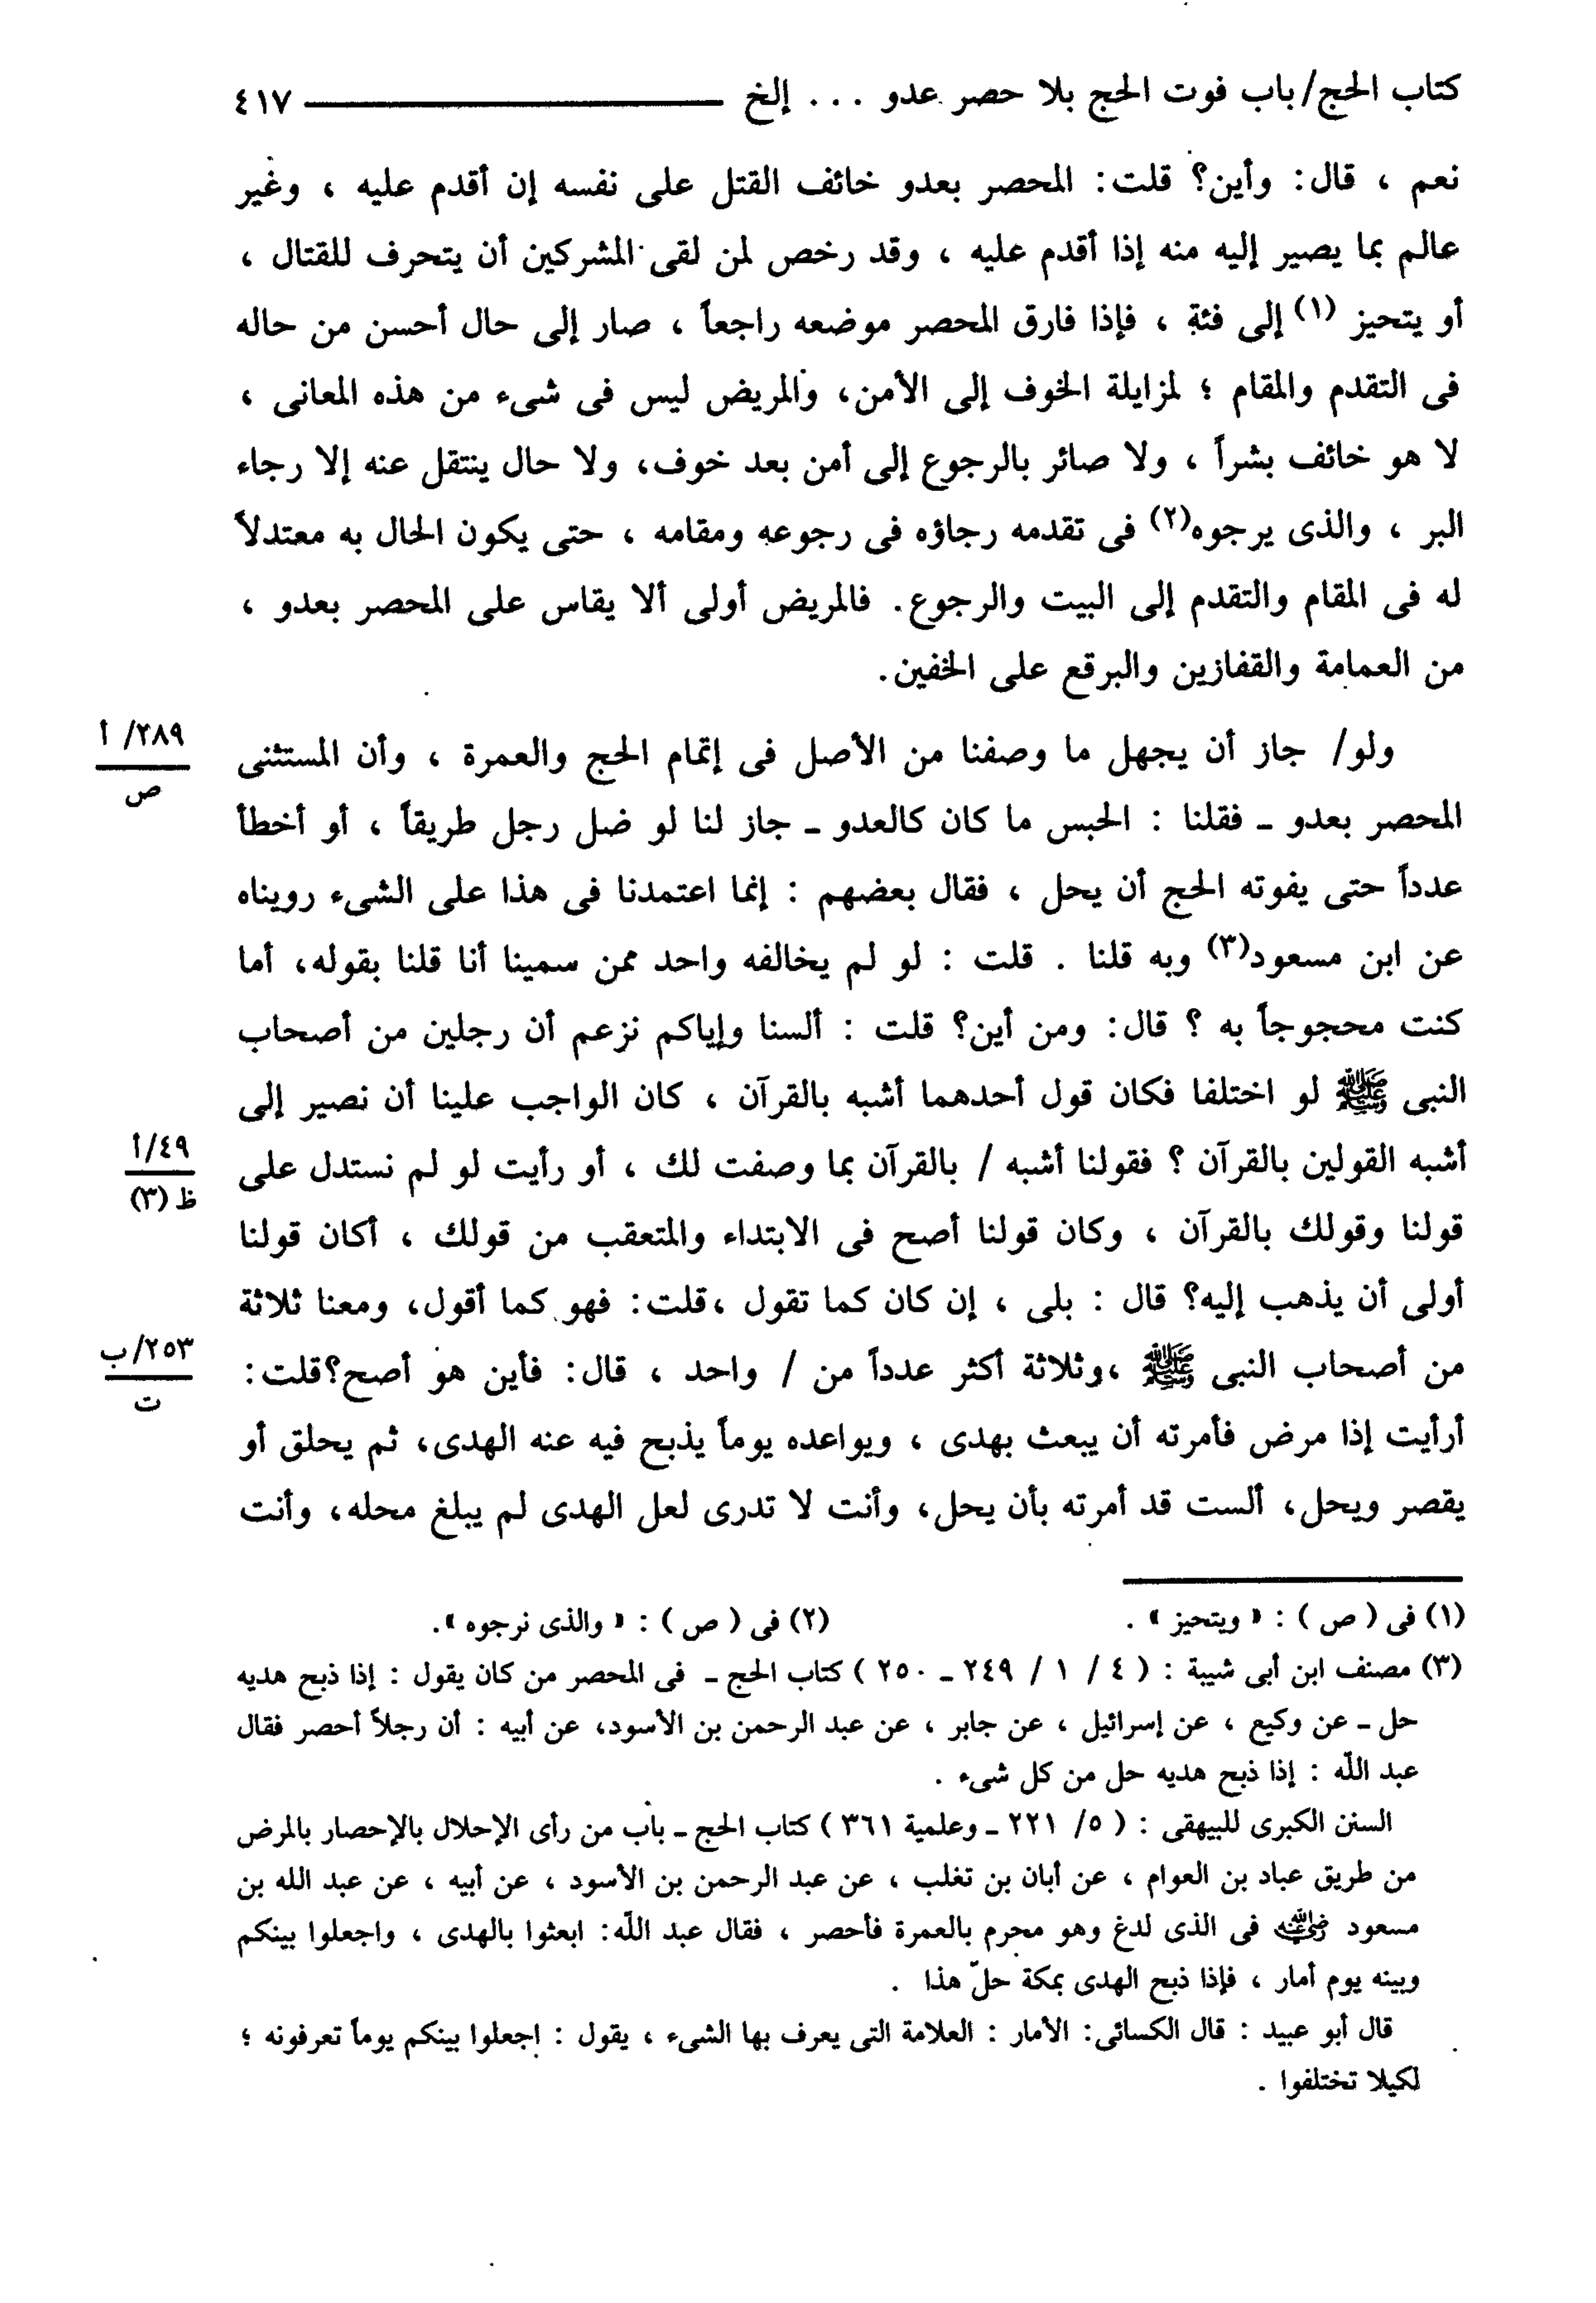 كتاب الحج/باب فوت الحج بلا حصر عدو . . . إلخ ٤١٧
نعم ، قال: وأين؟ قلت: المحصر بعدو خائف القتل على نفسه إن أقدم عليه ، وغير
عالم بما يصير إليه منه إذا أقدم عليه ، وقد رخص لمن لقى المشركين أن يتحرف للقتال ،
أو يتحيز (١) إلى فئة ، فإذا فارق المحصر موضعه راجعاً ، صار إلى حال أحسن من حاله
فى التقدم والمقام ؛ لمزايلة الخوف إلى الأمن، والمريض ليس فى شىء من هذه المعانى ،
لا هو خائف بشراً ، ولا صائر بالرجوع إلى أمن بعد خوف، ولا حال ينتقل عنه إلا رجاء
البر ، والذى يرجوه(٢) فى تقدمه رجاؤه فى رجوعه ومقامه ، حتى يكون الحال به معتدلاً
له فى المقام والتقدم إلى البيت والرجوع. فالمريض أولى ألا يقاس على المحصر بعدو ،
من العمامة والقفازين والبرقع على الخفين.
ولو/ جاز أن يجهل ما وصفنا من الأصل فى إتمام الحج والعمرة ، وأن المستثنى
٢٨٩/ أ
ص
المحصر بعدو ـ فقلنا : الحبس ما كان كالعدو ـ جاز لنا لو ضل رجل طريقاً ، أو أخطأ
عدداً حتى يفوته الحج أن يحل ، فقال بعضهم : إنما اعتمدنا فى هذا على الشىء رويناه
عن ابن مسعود(٣) وبه قلنا . قلت : لو لم يخالفه واحد ممن سمينا أنا قلنا بقوله، أما
كنت محجوجاً به ؟ قال: ومن أين؟ قلت : ألسنا وإياكم نزعم أن رجلين من أصحاب
النبى ﷺ لو اختلفا فكان قول أحدهما أشبه بالقرآن ، كان الواجب علينا أن نصير إلى
أشبه القولين بالقرآن ؟ فقولنا أشبه / بالقرآن بما وصفت لك ، أو رأيت لو لم نستدل على
٤٩/أ
ظ (٣)
قولنا وقولك بالقرآن ، وكان قولنا أصح فى الابتداء والمتعقب من قولك ، أكان قولنا
أولى أن يذهب إليه؟ قال : بلى ، إن كان كما تقول ،قلت: فهو كما أقول، ومعنا ثلاثة
من أصحاب النبى ﷺ ،وثلاثة أكثر عدداً من / واحد ، قال: فأين هو أصح؟قلت:
٢٥٣/ب
ت
أرأيت إذا مرض فأمرته أن يبعث بهدى ، ويواعده يوماً يذبح فيه عنه الهدى، ثم يحلق أو
يقصر ويحل، ألست قد أمرته بأن يحل، وأنت لا تدرى لعل الهدى لم يبلغ محله، وأنت
(١) فى ( ص ) : « ويتحيز » . (٢) فى ( ص ) : « والذى نرجوه ».
(٣) مصنف ابن أبى شيبة : ( ٤ / ١ / ٢٤٩ ـ ٢٥٠ ) كتاب الحج ـ فى المحصر من كان يقول : إذا ذبح هديه
حل ـ عن وكيع ، عن إسرائيل ، عن جابر ، عن عبد الرحمن بن الأسود، عن أبيه : أن رجلاً أحصر فقال
عبد اللّه : إذا ذبح هديه حل من كل شىء .
السنن الكبرى للبيهقى : ( ٥/ ٢٢١ ـ وعلمية ٣٦١ ) كتاب الحج ـ باب من رأى الإحلال بالإحصار بالمرض
من طريق عباد بن العوام ، عن أبان بن تغلب ، عن عبد الرحمن بن الأسود ، عن أبيه ، عن عبد الله بن
مسعود رضي الله عنه فى الذى لدغ وهو محرم بالعمرة فأحصر ، فقال عبد اللّه: ابعثوا بالهدى ، واجعلوا بينكم
وبينه يوم أمار ، فإذا ذبح الهدى بمكة حلّ هذا .
قال أبو عبيد : قال الكسائى: الأمار : العلامة التى يعرف بها الشىء ، يقول : اجعلوا بينكم يوماً تعرفونه ؛
لكيلا تختلفوا .